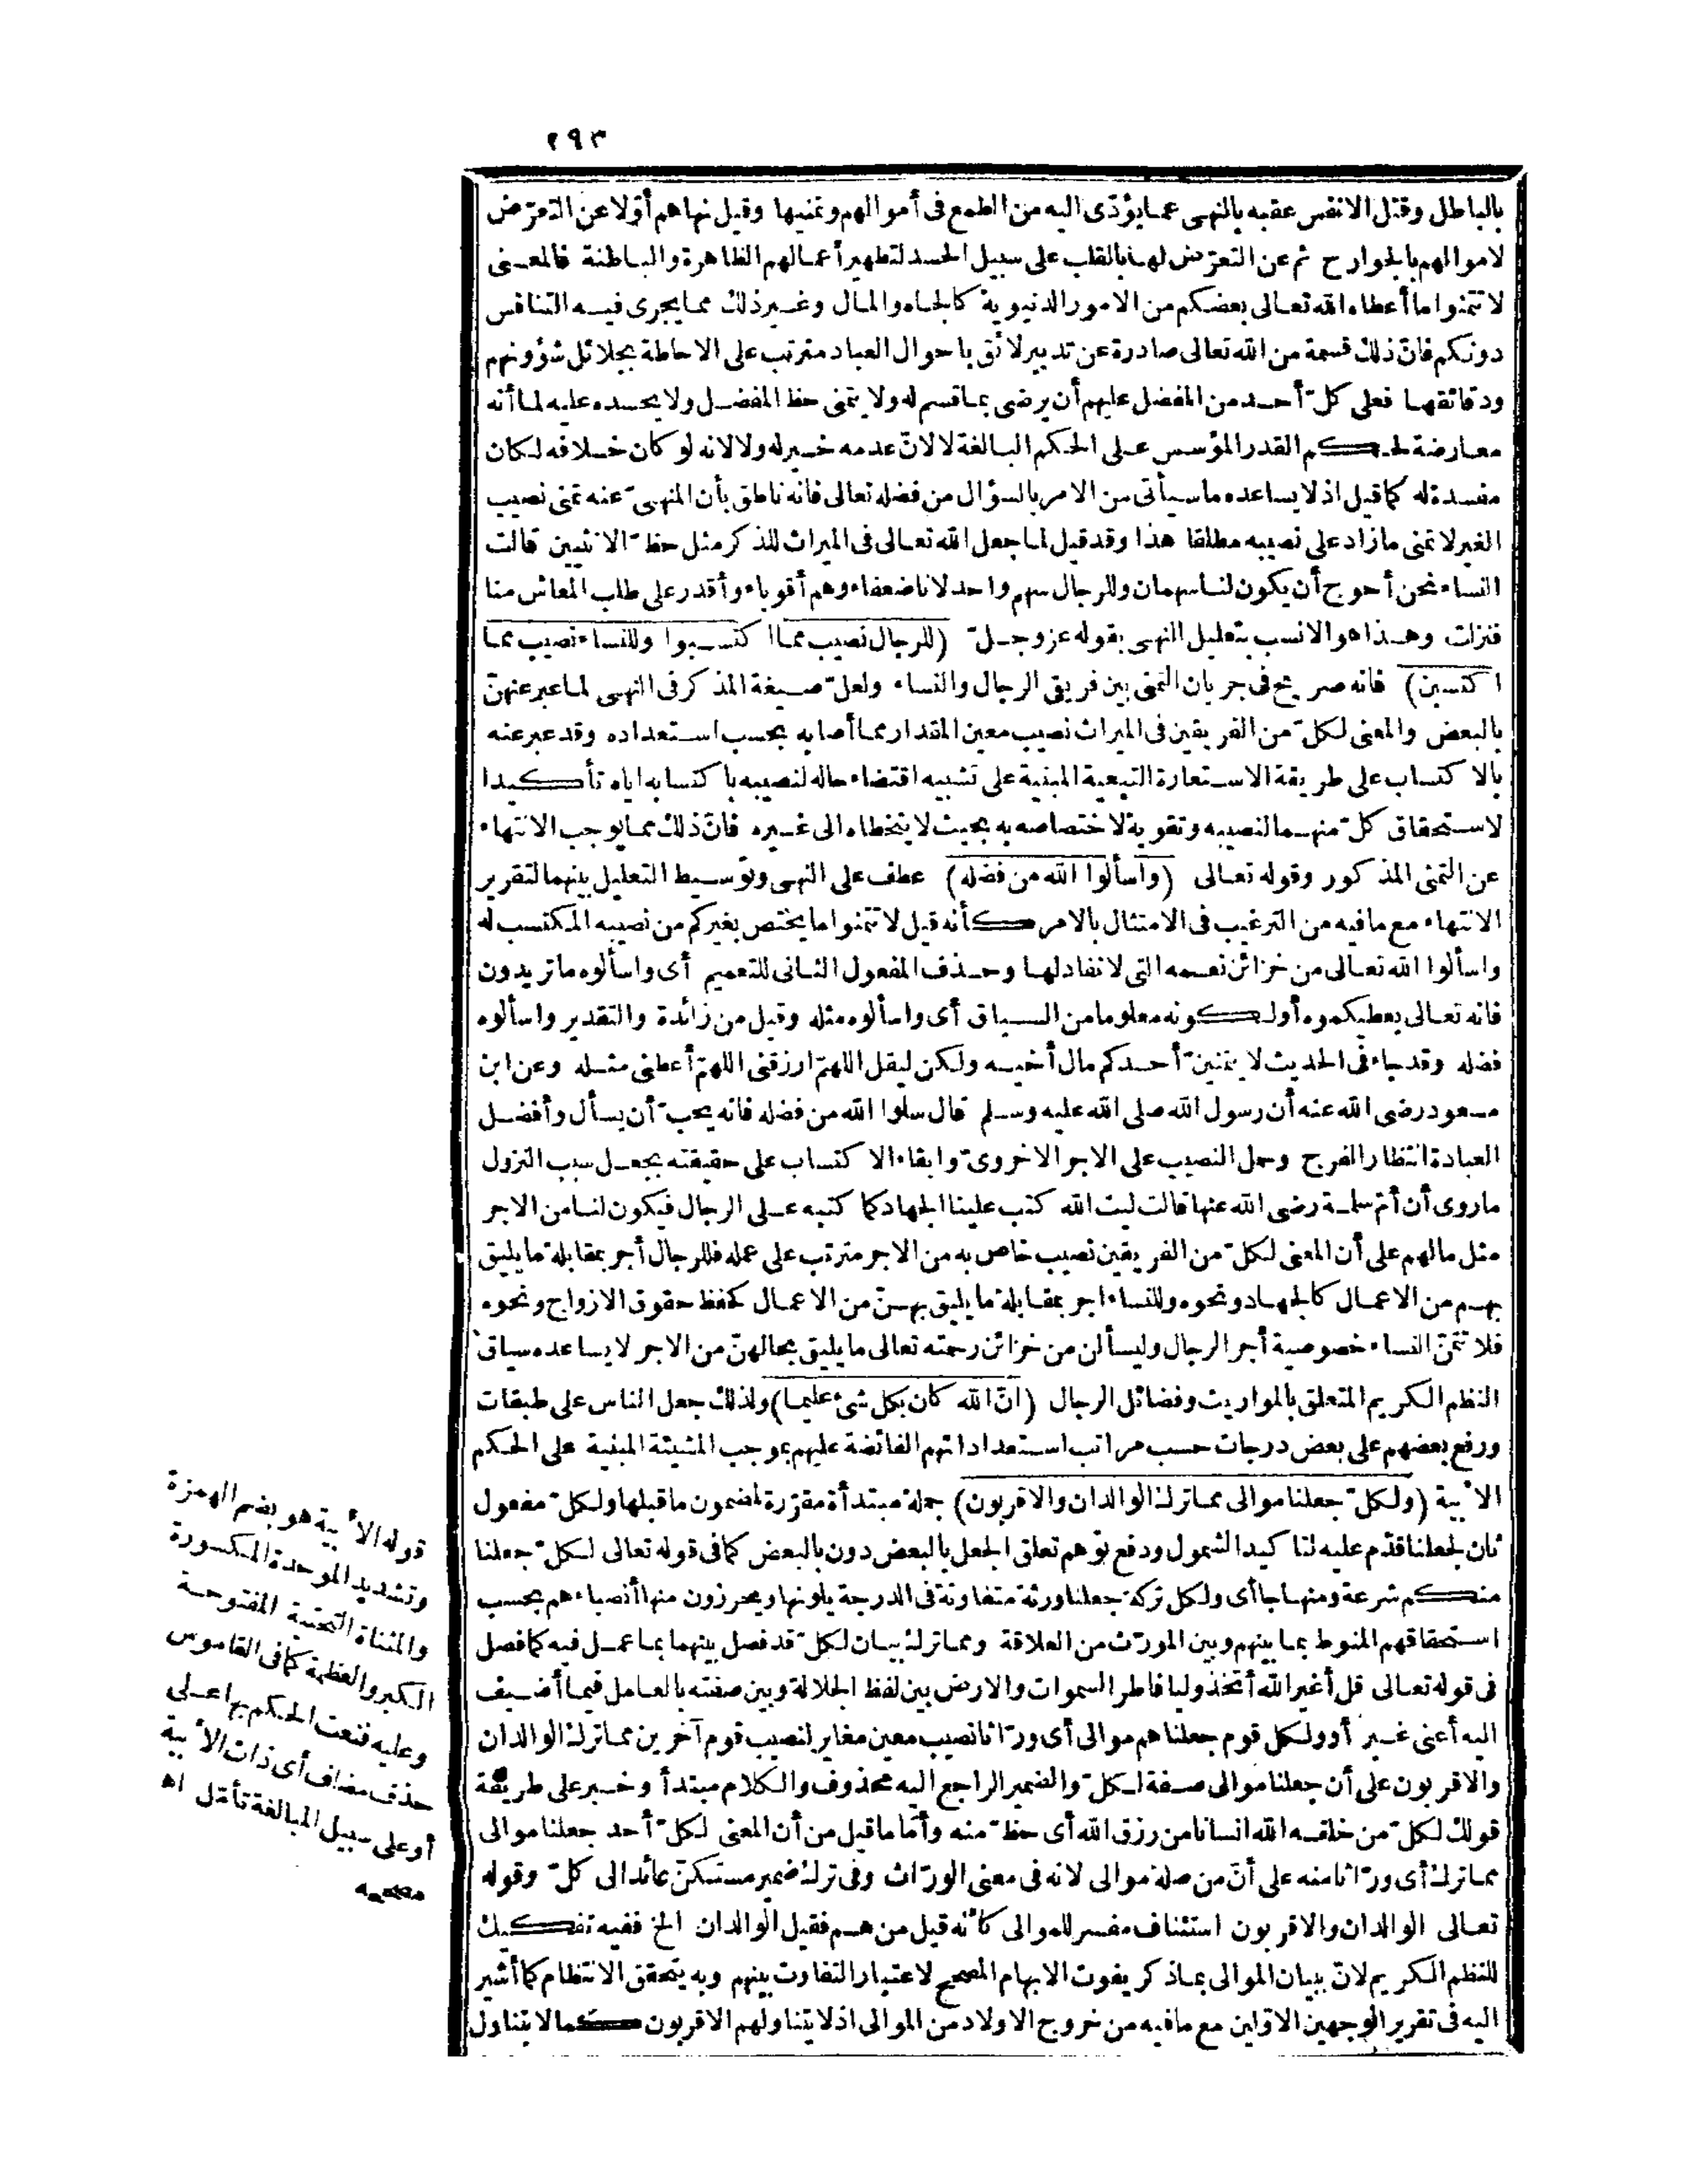 ٢٩٣
بالباطل وقتل الانفس عقبه بالنهى عما يؤدّى اليه من الطمع فى أموالهم وتمنيها وقيل نهاهم أوّلا عن التعرّض
لاموالهم بالجوارح ثم عن التعرّض لها بالقلب على سبيل الحسد لتطهير أعمالهم الظاهرة والباطنة فالمعنى
لا تتمنوا ما أعطاه الله تعالى بعضكم من الامور الدنيوية كالجاه والمال وغير ذلك مما يجرى فيه التنافس
دونكم فانّ ذلك قسمة من الله تعالى صادرة عن تدبير لائق باحوال العباد مترتب على الاحاطة بجلائل شؤونهم
ودقائقها فعلى كلّ أحد من المفضل عليهم أن يرضى بما قسم له ولا يتمنى حظ المفضل ولا يحسده عليه لما أنه
معارضة لحكم القدر المؤسس على الحكم البالغة لا لانّ عدمه خير له ولا لانه لو كان خلافه لكان
مفسدة له كما قيل اذ لا يساعده ما سيأتى من الامر بالسؤال من فضله تعالى فانه ناطق بأن المنهىّ عنه تمنى نصيب
الغير لا تمنى ما زاد على نصيبه مطلقا هذا وقد قيل لما جعل الله تعالى فى الميراث للذكر مثل حظّ الانثيين قالت
النساء نحن أحوج أن يكون لنا سهمان وللرجال سهم واحد لانا ضعفاء وهم أقوياء وأقدر على طلب المعاش منا
فنزلت وهذا هو الانسب بتعليل النهى بقوله عز وجلّ (للرجال نصيب مما اكتسبوا وللنساء نصيب مما
اكتسبن) فانه صريح فى جريان التمنى بين فريق الرجال والنساء ولعلّ صيغة المذكر فى النهى لما عبر عنهنّ
بالبعض والمعنى لكلّ من الفريقين فى الميراث نصيب معين المقدار مما أصابه بحسب استعداده وقد عبر عنه
بالاكتساب على طريقة الاستعارة التبعية المبنية على تشبيه اقتضاء حاله لنصيبه باكتسابه اياه تأكيدا
لاستحقاق كلّ منهما لنصيبه وتقوية لاختصاصه به بحيث لا يتخطاه الى غيره فانّ ذلك مما يوجب الانتهاء
عن التمنى المذكور وقوله تعالى (واسألوا الله من فضله) عطف على النهى وتوسيط التعليل بينهما لتقرير
الانتهاء مع ما فيه من الترغيب فى الامتثال بالامر كأنه قيل لا تتمنوا ما يختص بغيركم من نصيبه المكتسب له
واسألوا الله تعالى من خزائن نعمه التى لا نفاد لها وحذف المفعول الثانى للتعميم أى واسألوه ما تريدون
فانه تعالى يعطيكموه أو لكونه معلوما من السياق أى واسألوه مثله وقيل من زائدة والتقدير واسألوه
فضله وقد جاء فى الحديث لا يتمنينّ أحدكم مال أخيه ولكن ليقل اللهمّ ارزقنى اللهمّ أعطنى مثله وعن ابن
مسعود رضى الله عنه أن رسول الله صلى الله عليه وسلم قال سلوا الله من فضله فانه يحبّ أن يسأل وأفضل
العبادة انتظار الفرج وحمل النصيب على الاجر الاخروىّ وابقاء الاكتساب على حقيقته بجعل سبب النزول
ما روى أن أمّ سلمة رضى الله عنها قالت ليت الله كتب علينا الجهاد كما كتبه على الرجال فيكون لنا من الاجر
مثل ما لهم على أن المعنى لكلّ من الفريقين نصيب خاص به من الاجر مترتب على عمله فللرجال أجر بمقابلة ما يليق
بهم من الاعمال كالجهاد ونحوه وللنساء اجر بمقابلة ما يليق بهنّ من الاعمال كحفظ حقوق الازواج ونحوه
فلا تتمنّ النساء خصوصية أجر الرجال وليسألن من خزائن رحمته تعالى ما يليق بحالهنّ من الاجر لا يساعده سياق
النظم الكريم المتعلق بالمواريث وفضائل الرجال (انّ الله كان بكل شىء عليما) ولذلك جعل الناس على طبقات
ورفع بعضهم على بعض درجات حسب مراتب استعداداتهم الفائضة عليهم بموجب المشيئة المبنية على الحكم
الأبية (ولكلّ جعلنا موالى مما ترك الوالدان والاقربون) جملة مبتدأة مقرّرة لمضمون ما قبلها ولكلّ مفعول
ثان لجعلنا قدّم عليه لتاكيد الشمول ودفع توهم تعلق الجعل بالبعض دون بالبعض كما فى قوله تعالى لكلّ جعلنا
منكم شرعة ومنهاجا أى ولكل تركة جعلنا ورثة متفاوتة فى الدرجة يلونها ويحرزون منها أنصباءهم بحسب
استحقاقهم المنوط بما بينهم وبين المورّث من العلاقة ومما ترك بيان لكلّ قد فصل بينهما بما عمل فيه كما فصل
فى قوله تعالى قل أغير الله أتخذ وليا فاطر السموات والارض بين لفظ الجلالة وبين صفته بالعامل فيما أضيف
اليه أعنى غير أو ولكل قوم جعلناهم موالى أى ورّاثا نصيب معين مغاير لنصيب قوم آخرين مما ترك الوالدان
والاقربون على أن جعلنا موالى صفة لكلّ والضمير الراجع اليه محذوف والكلام مبتدأ وخبر على طريقة
قولك لكلّ من خلقه الله انسانا من رزق الله أى حظّ منه وأمّا ما قيل من أن المعنى لكلّ أحد جعلنا موالى
مما ترك أى ورّاثا منه على أنّ من صلة موالى لانه فى معنى الورّاث وفى ترك ضمير مستكنّ عائد الى كلّ وقوله
تعالى الوالدان والاقربون استئناف مفسر للموالى كأنه قيل من هم فقيل الوالدان الخ ففيه تفكيك
للنظم الكريم لانّ ببيان الموالى بما ذكر يفوت الابهام المصحح لاعتبار التفاوت بينهم وبه يتحقق الانتظام كما أشير
اليه فى تقرير الوجهين الاوّلين مع ما فيه من خروج الاولاد من الموالى اذ لا يتناولهم الاقربون كما لا يتناول
قوله الأبية هو بضم الهمزة
وتشديد الموحدة المكسورة
والمثناة التحتية المفتوحة
الكبر والعظمة كما فى القاموس
وعليه فنعت الحكم بها على
حذف مضاف أى ذات الأبية
أو على سبيل المبالغة تأمّل اه
مصححه